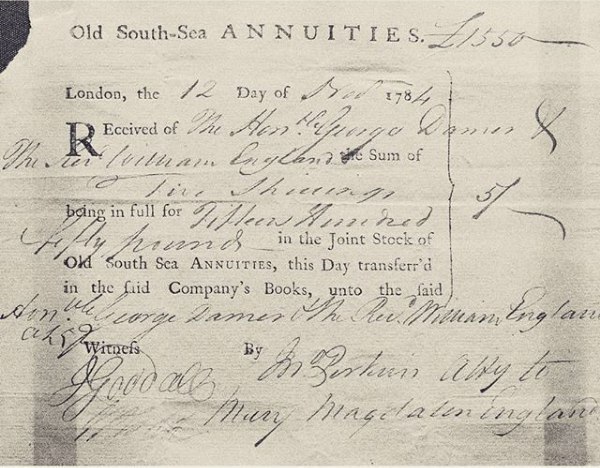 Old South-Sea ANNUITIES. £1550
London, the 12 Day of Nov 1784
REceived of The Honble George Damer &
The Revd William England the Sum of
Five Shillings
being in full for Fifteen Hundred 5/
fifty pounds in the Joint Stock of
Old South Sea ANNUITIES, this Day transferr'd
in the said Company's Books, unto the said
Honble George Damer & The Revd William England
Witness By Jno Perkins Atty to
JGoddall
Mary Magdalen England